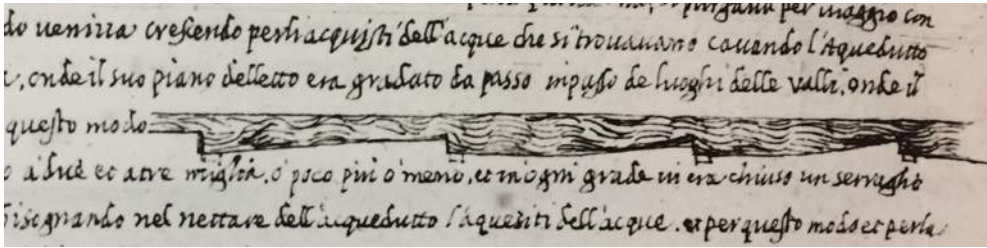 per viaggio con
do veniva crescendo perli acquisti dell'acque che si trovavano cavando l'Aquedutto
, onde il suo piano delletto era gradato da passo inpasso de luoghi delle valli, onde il
questo modo
o a due et a tre miglia, o poco più o meno, et in ogni grade vi era chiuso un serraglio
bisognando nel nettare dell'acquedutto l'aquesiti dell'acque. et per questo modo et perla